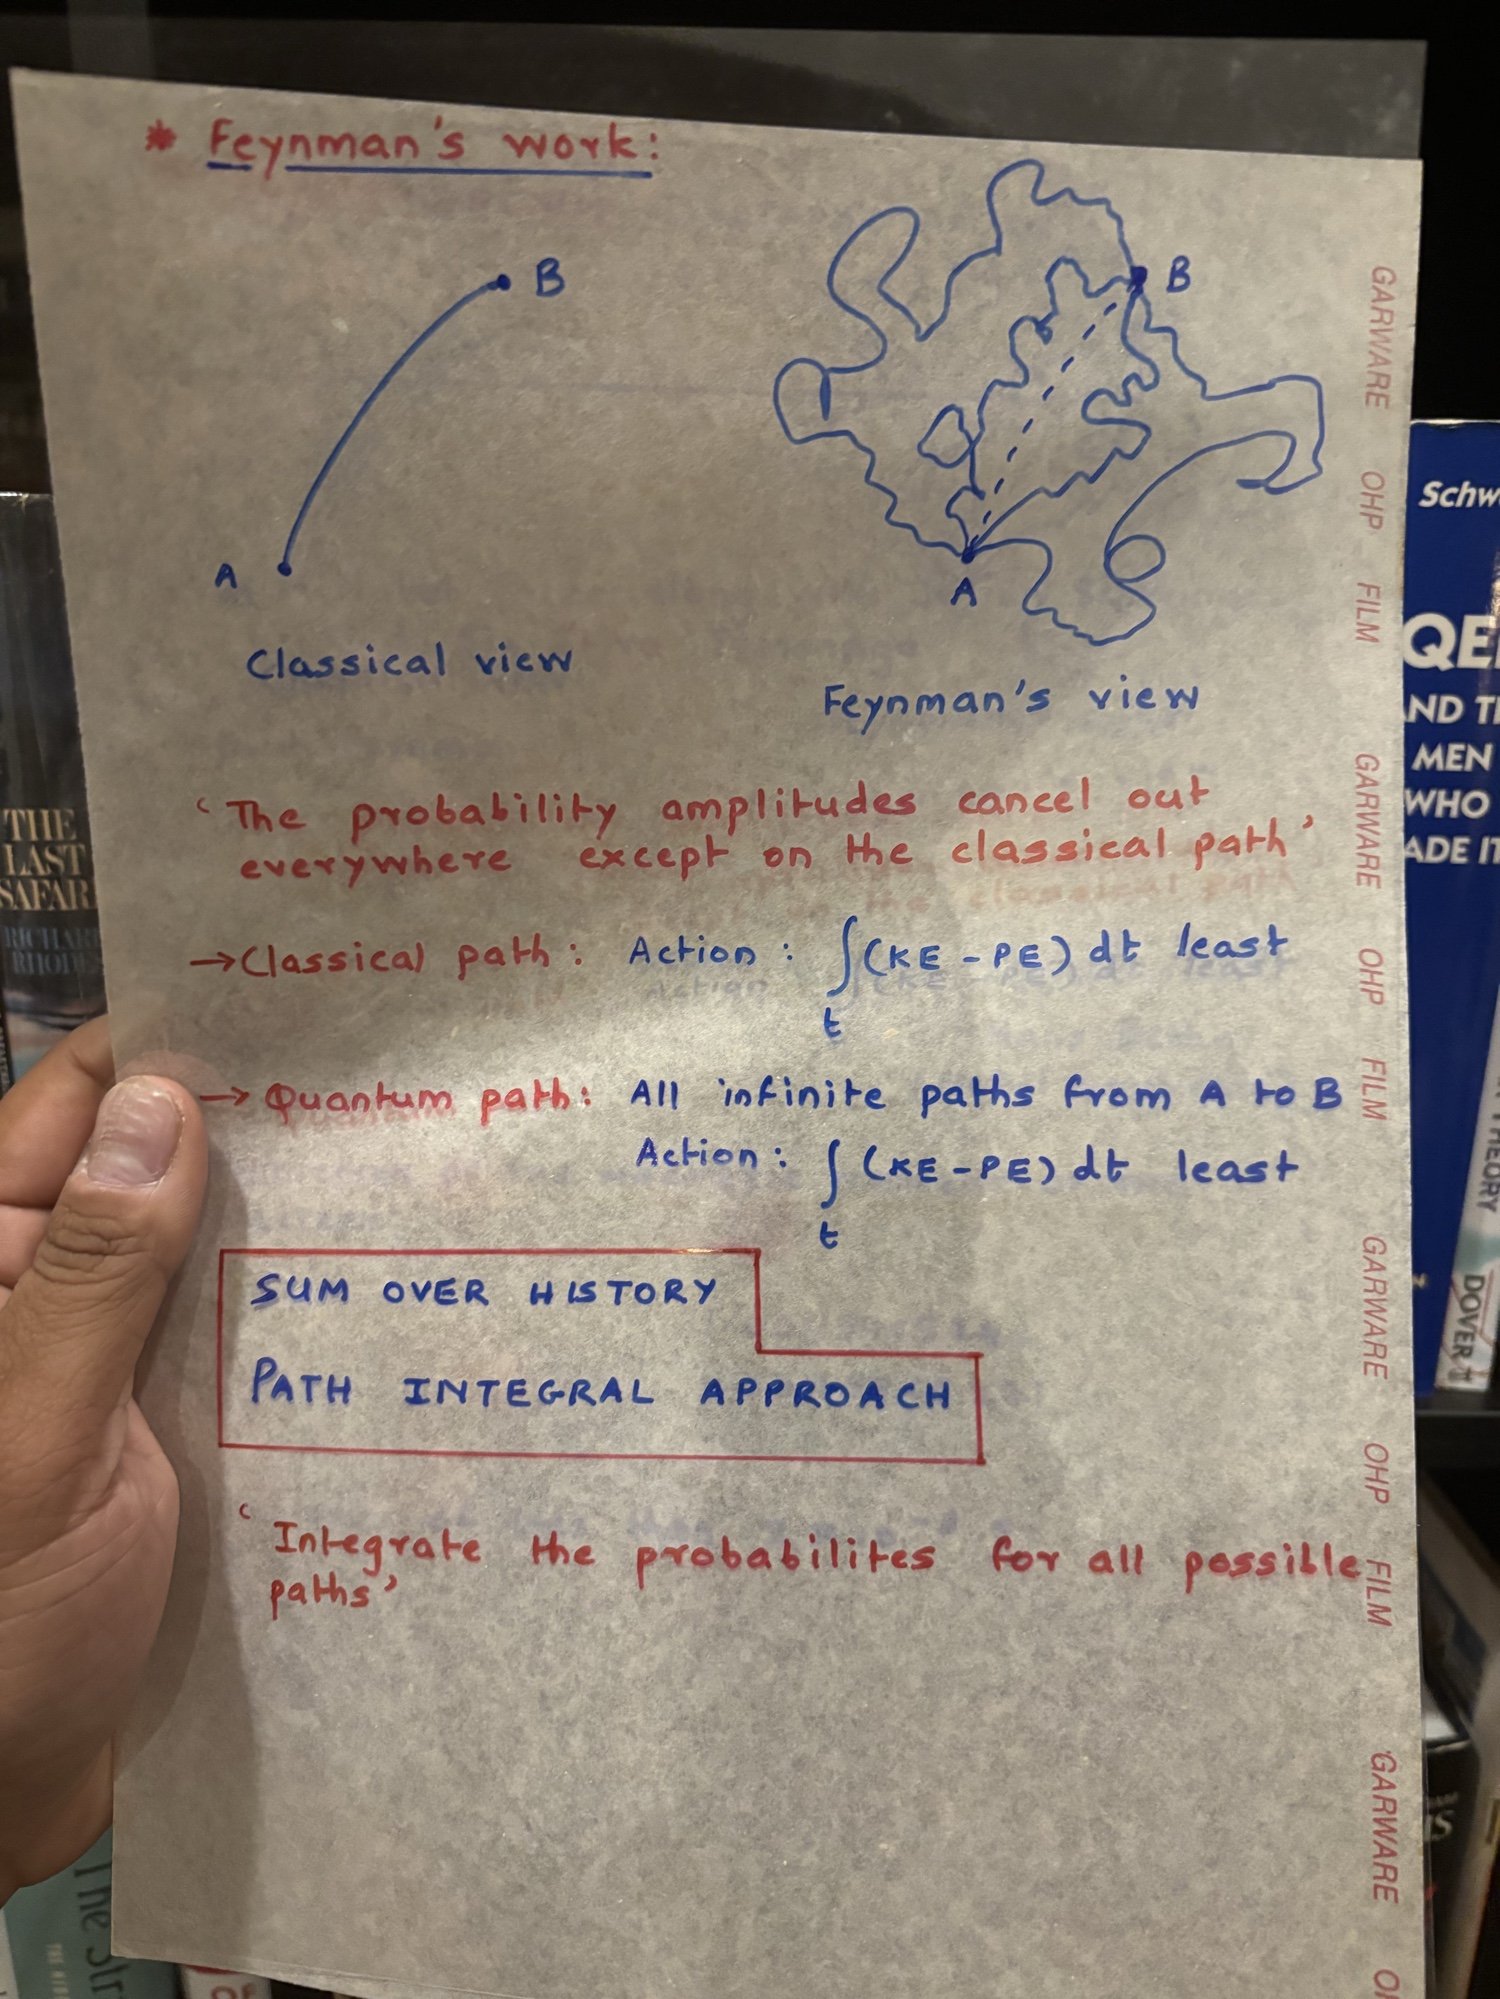 * Feynman's work:
B
A
Classical view
B
A
Feynman's view
'The probability amplitudes cancel out
everywhere except on the classical path'
→ Classical path: Action: ∫(KE - PE) dt least
t
→ Quantum path: All infinite paths from A to B
Action: ∫(KE - PE) dt least
t
SUM OVER HISTORY
PATH INTEGRAL APPROACH
'Integrate the probabilites for all possible
paths'
GARWARE OHP FILM GARWARE OHP FILM GARWARE OHP FILM GARWARE
THE
LAST
SAFARI
RICHARD
RHODES
Schw
QE
AND T
MEN
WHO
ADE IT
THEORY
DOVER